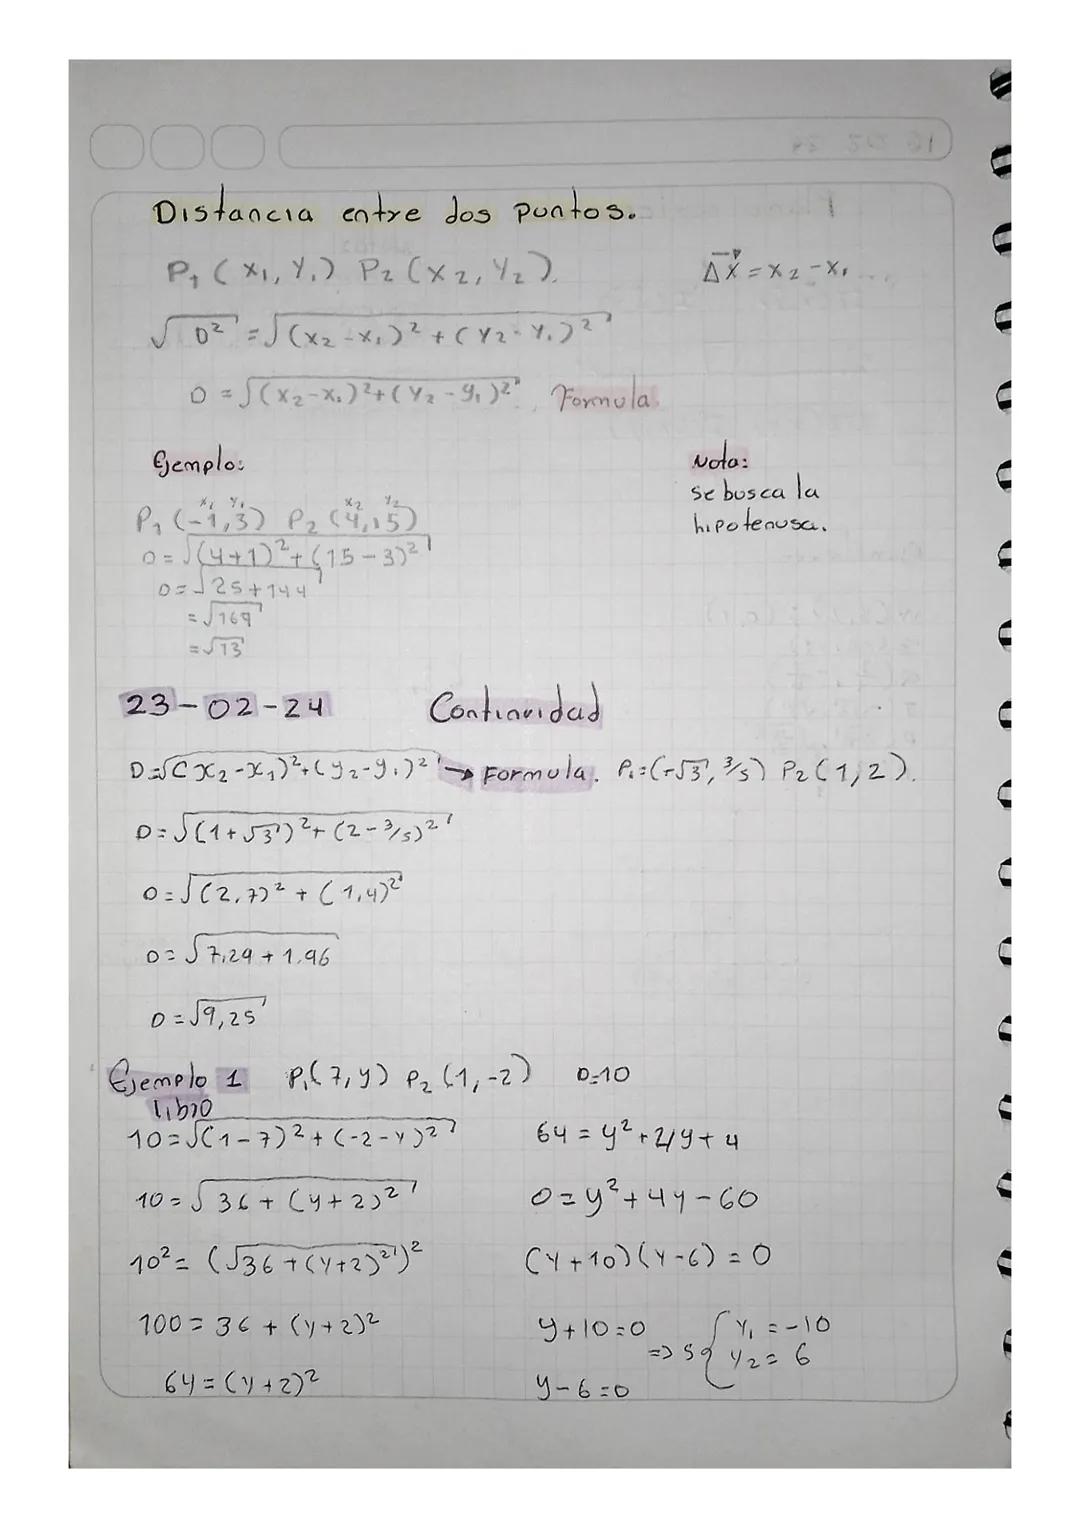 Distancia entre dos puntos.
P₁ (x₁, y₁) P₂ (x₂, y₂).
Δx⃗ = x₂ - x₁
√D² = √(x₂ - x₁)² + (y₂ - y₁)²
D = √(x₂ - x₁)² + (y₂ - y₁)² Formula
Ejemplo:
Nota:
se busca la
hipotenusa.
x₁ y₁ x₂ y₂
P₁ (-1,3) P₂ (4,15)
D = √(4+1)² + (15-3)²
D = √25+144
= √169
= √13
23-02-24 Continuidad
D = √(x₂ - x₁)² + (y₂ - y₁)² → Formula. P₁ = (-√3, 3/5) P₂ (1,2).
D = √(1+√3)² + (2 - 3/5)²
D = √(2,7)² + (1,4)²
D = √7,29 + 1.96
D = √9,25
Ejemplo 1 P₁(7,y) P₂ (1,-2) D=10
libro
10 = √(1-7)² + (-2-y)²
10 = √36 + (y+2)²
10² = (√36 + (y+2)²)²
100 = 36 + (y+2)²
64 = (y+2)²
64 = y² + 4y + 4
0 = y² + 4y - 60
(y+10)(y-6) = 0
y+10=0
y-6=0
=> S { y₁ = -10
y₂ = 6